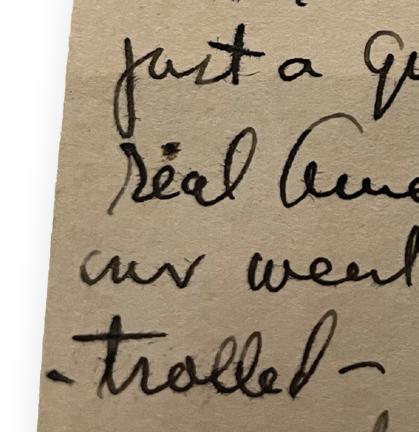 just a qu
real Ame
our weal
-trolled-